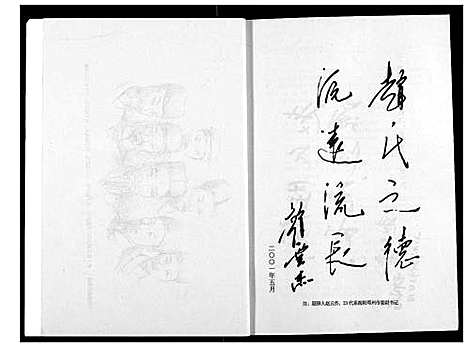 赵氏之德
源远流长
赵云杰
二〇〇一年五月
注：题辞人赵云杰，23代系南阳邓州市委副书记